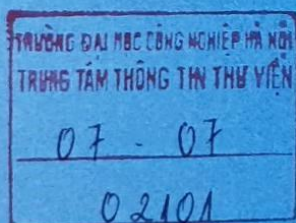 TRƯỜNG ĐẠI HỌC CÔNG NGHIỆP HÀ NỘI
TRUNG TÂM THÔNG TIN THƯ VIỆN
07 - 07
02101